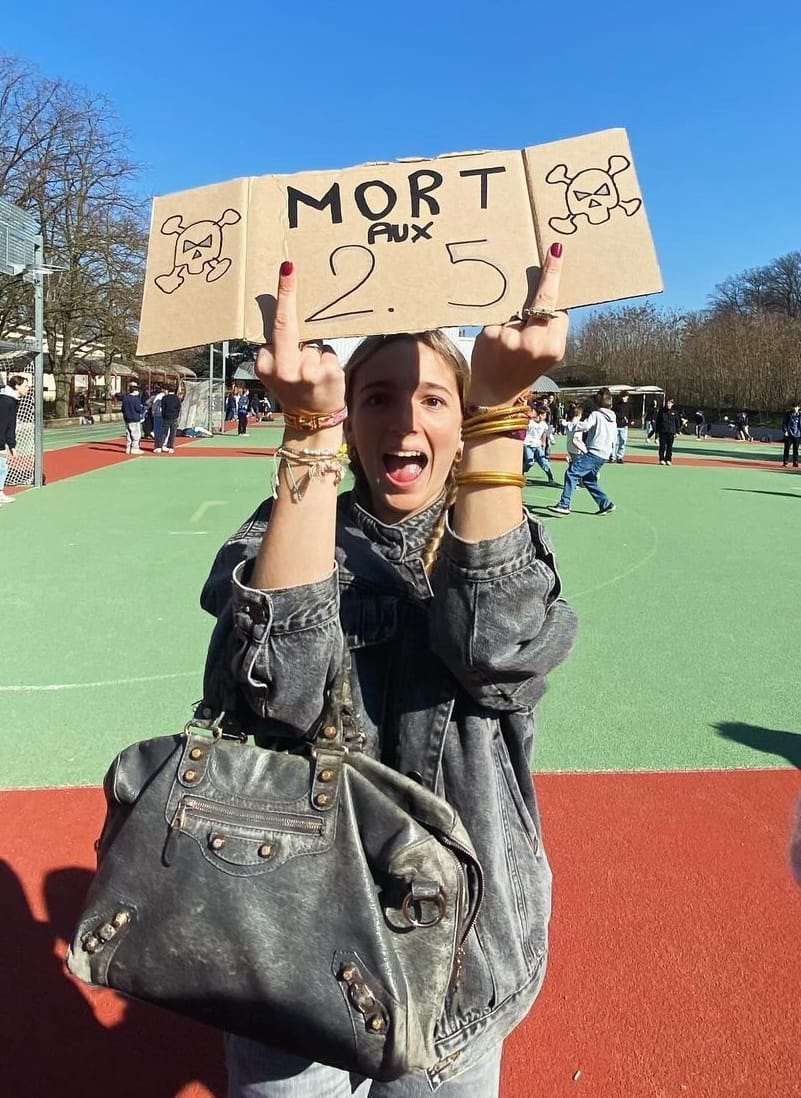 MORT
AUX
2.5